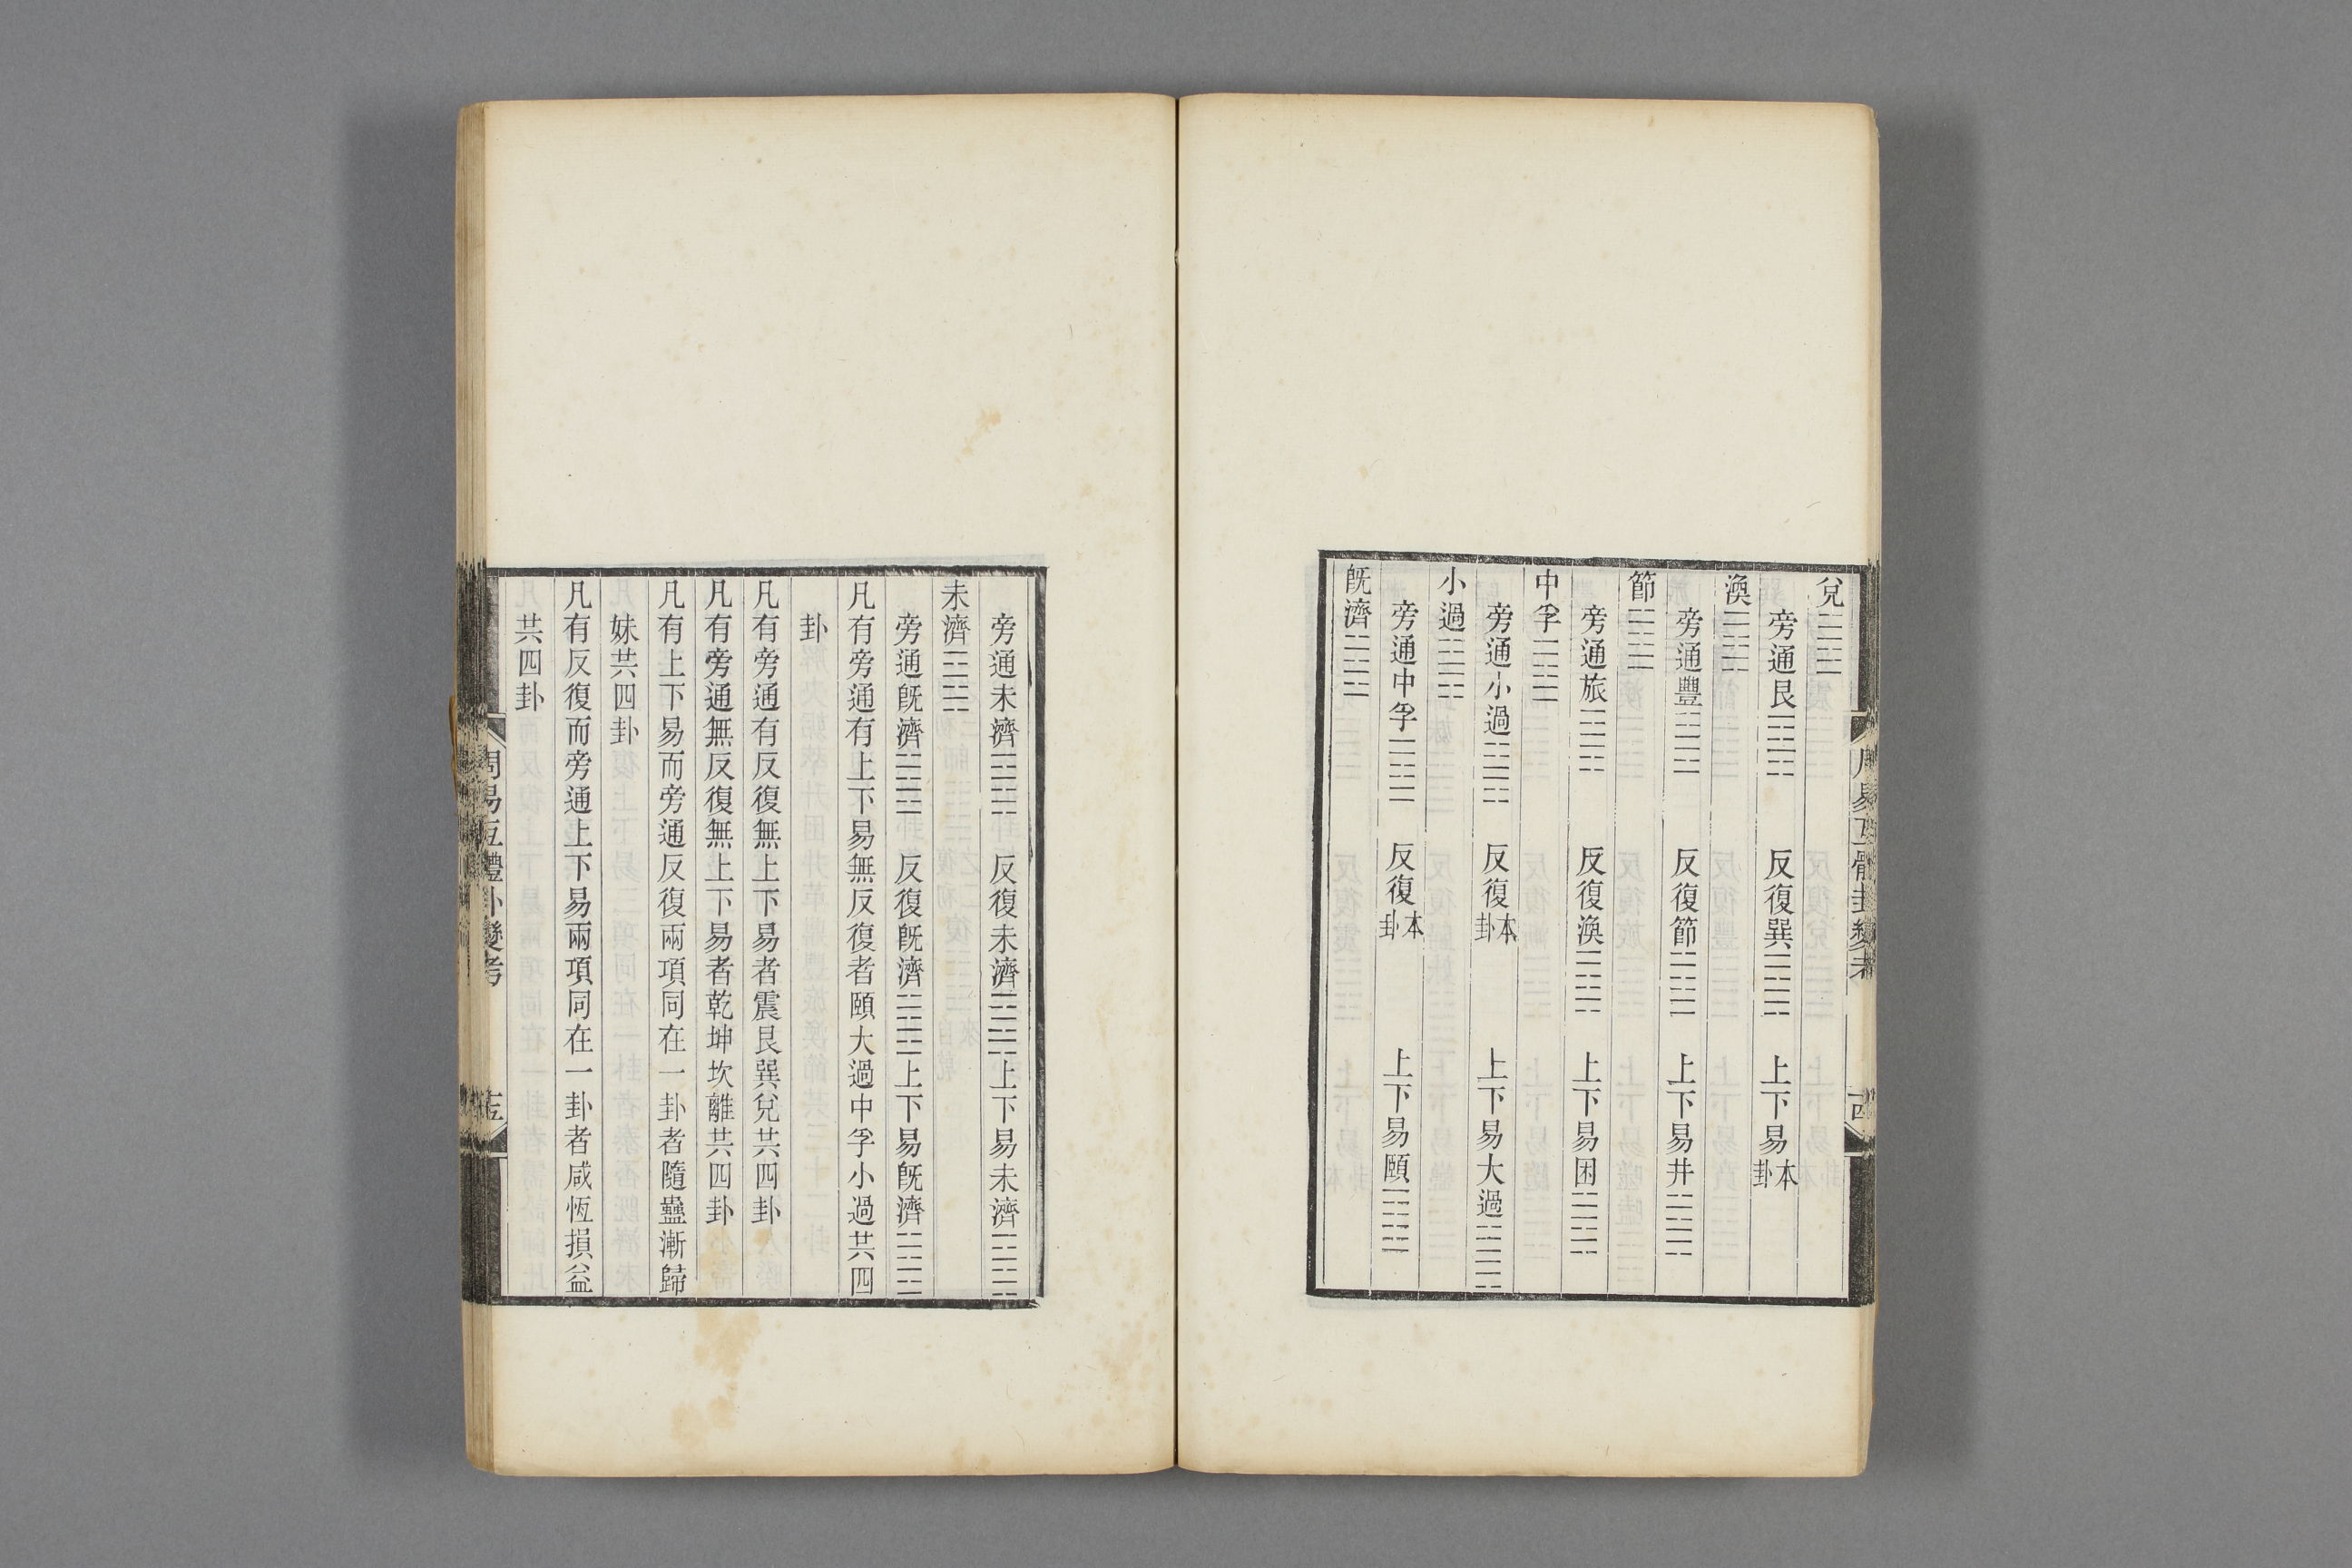 兌䷹
旁通艮䷳ 反復巽䷸ 上下易本卦
渙䷺
旁通豐䷶ 反復節䷻ 上下易井䷯
節䷻
旁通旅䷷ 反復渙䷺ 上下易困䷮
中孚䷼
旁通小過䷽ 反復本卦 上下易大過䷛
小過䷽
旁通中孚䷼ 反復本卦 上下易頤䷚
旣濟䷾
周易互體卦變考
旁通未濟䷿ 反復未濟䷿上下易未濟䷿
未濟䷿
旁通旣濟䷾ 反復旣濟䷾上下易旣濟䷾
凡有旁通有上下易無反復者頤大過中孚小過共四
卦
凡有旁通有反復無上下易者震艮巽兌共四卦
凡有旁通無反復無上下易者乾坤坎離共四卦
凡有上下易而旁通反復兩項同在一卦者隨蠱漸歸
妹共四卦
凡有反復而旁通上下易兩項同在一卦者咸恆損益
共四卦
周易互體卦變考